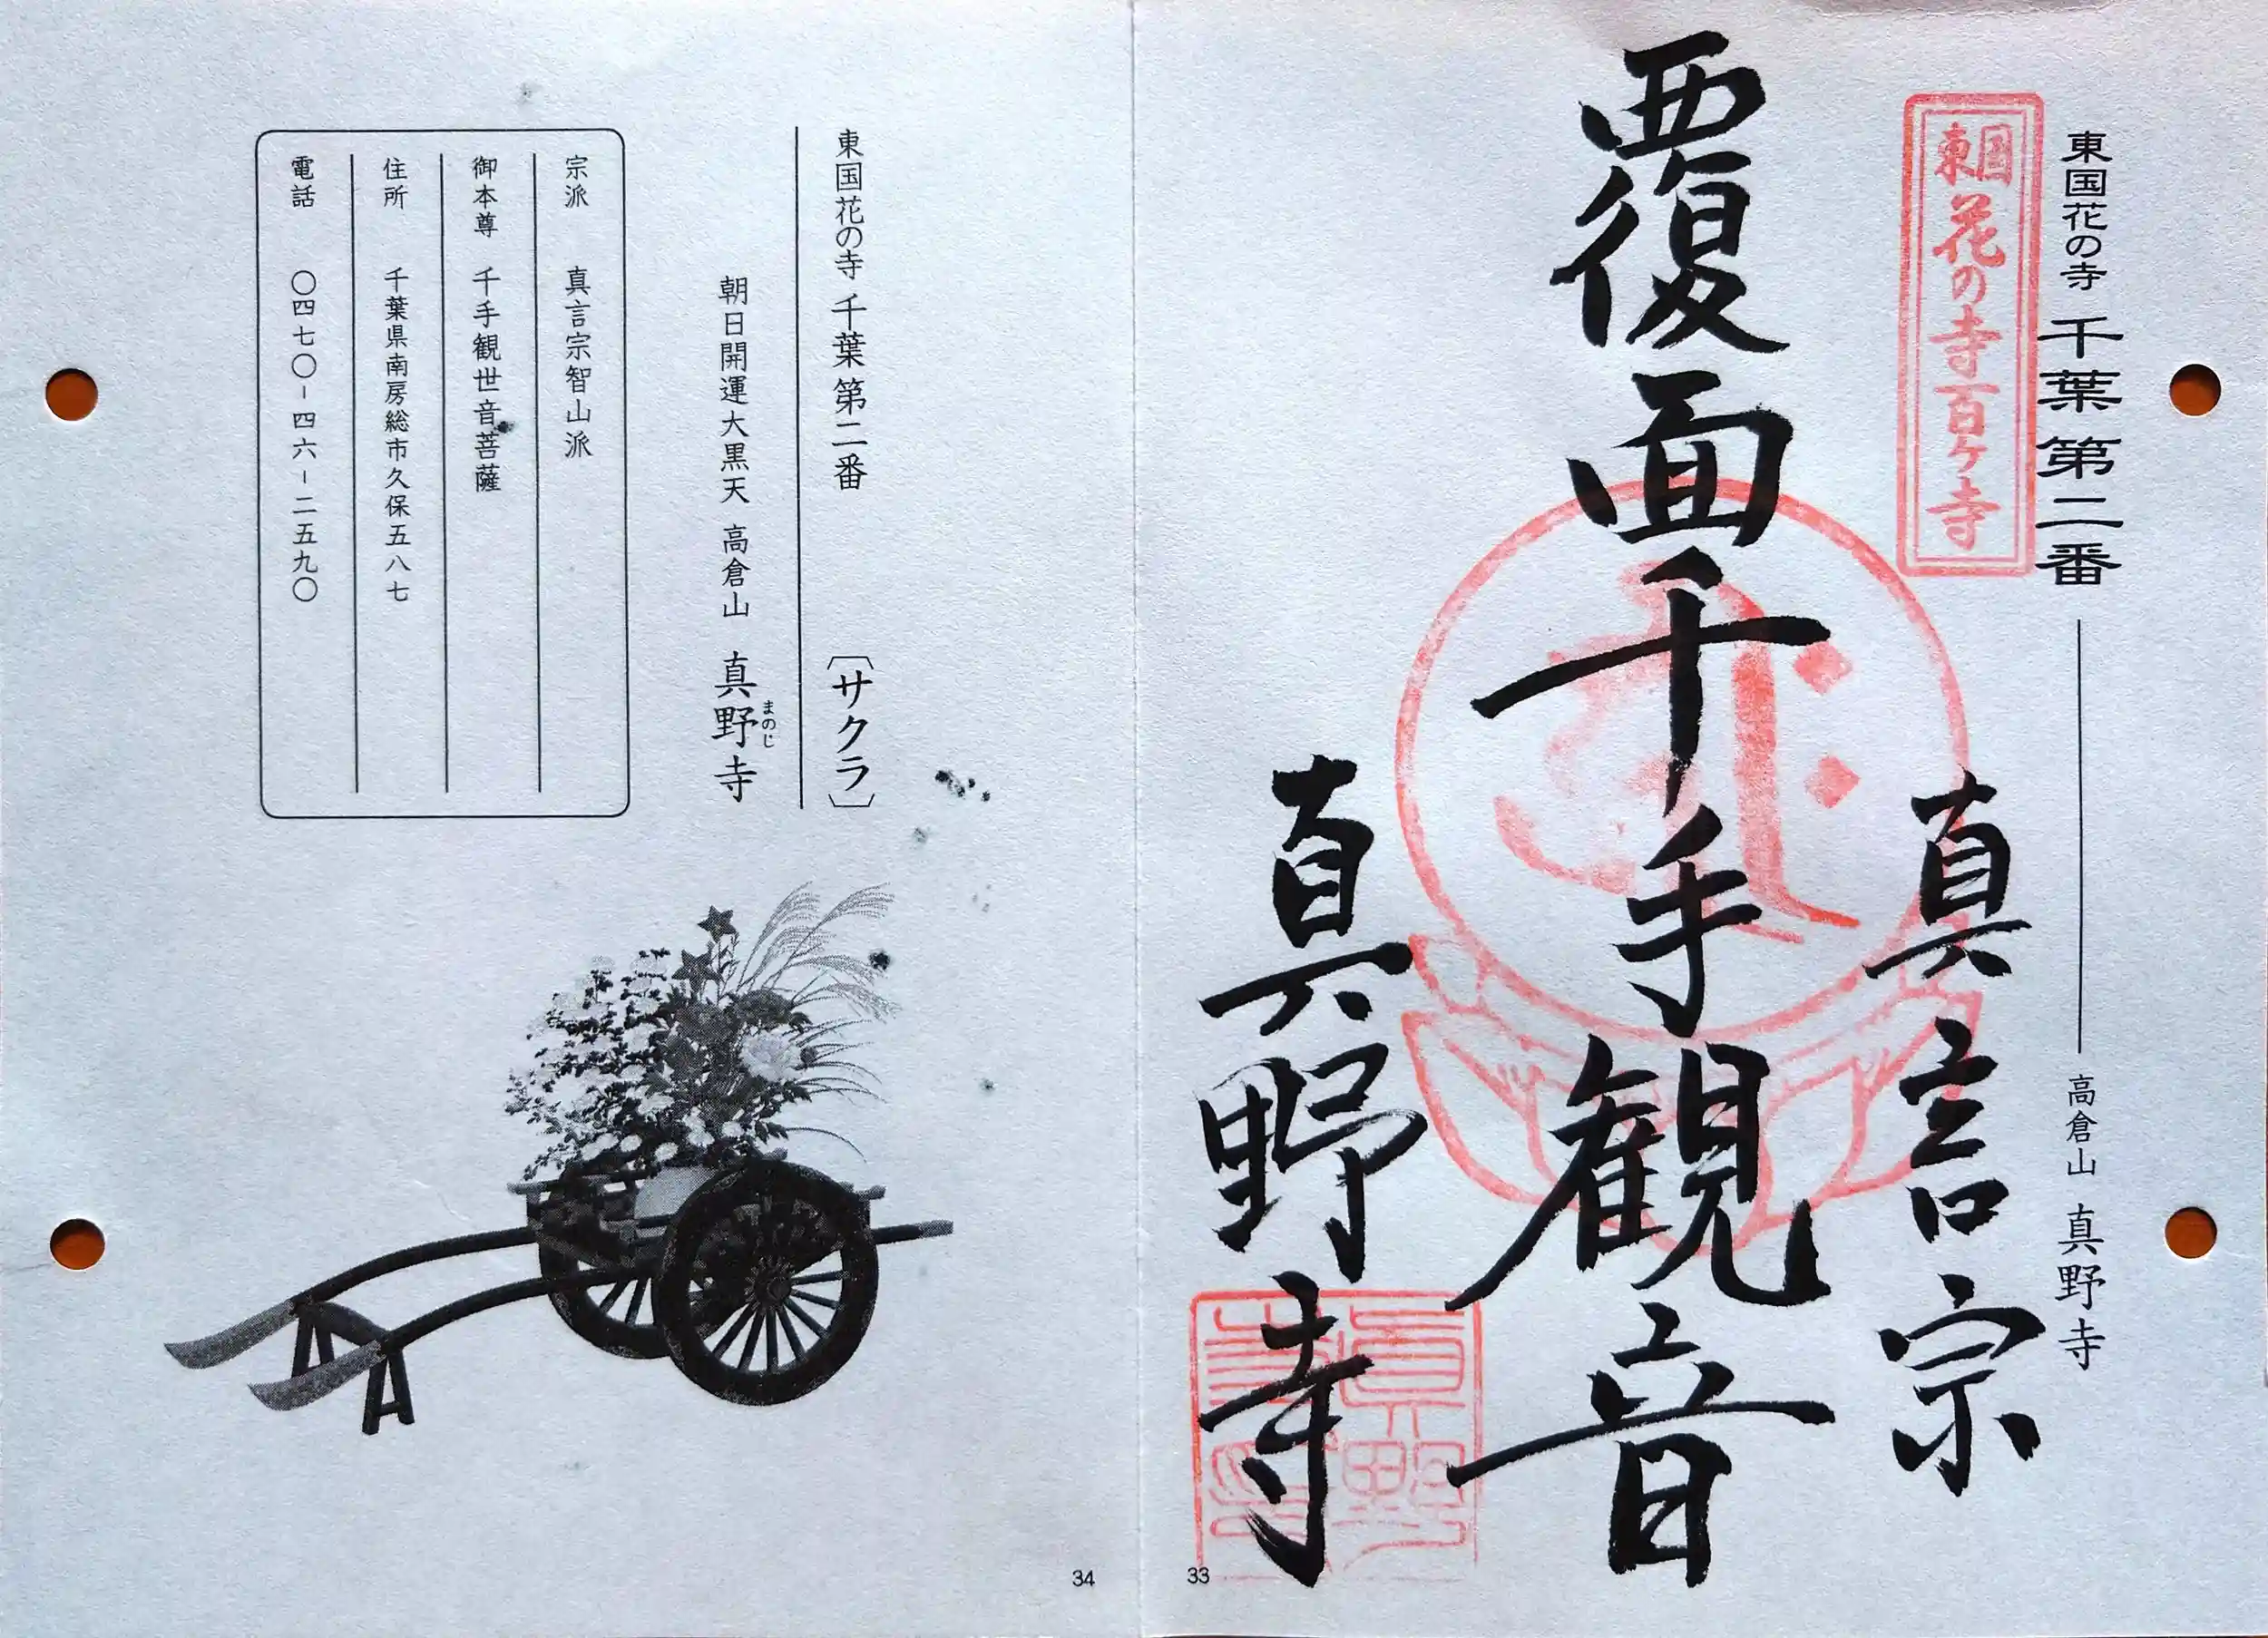 東国花の寺 千葉 第二番 高倉山 真野寺
東国花の寺百ヶ寺
真言宗
覆面千手観音
真野寺
真野
寺印
33
東国花の寺 千葉 第二番 〔サクラ〕
朝日開運大黒天 高倉山 真野寺
まのじ
宗派 真言宗智山派
御本尊 千手観世音菩薩
住所 千葉県南房総市久保五八七
電話 〇四七〇-四六-二五九〇
34